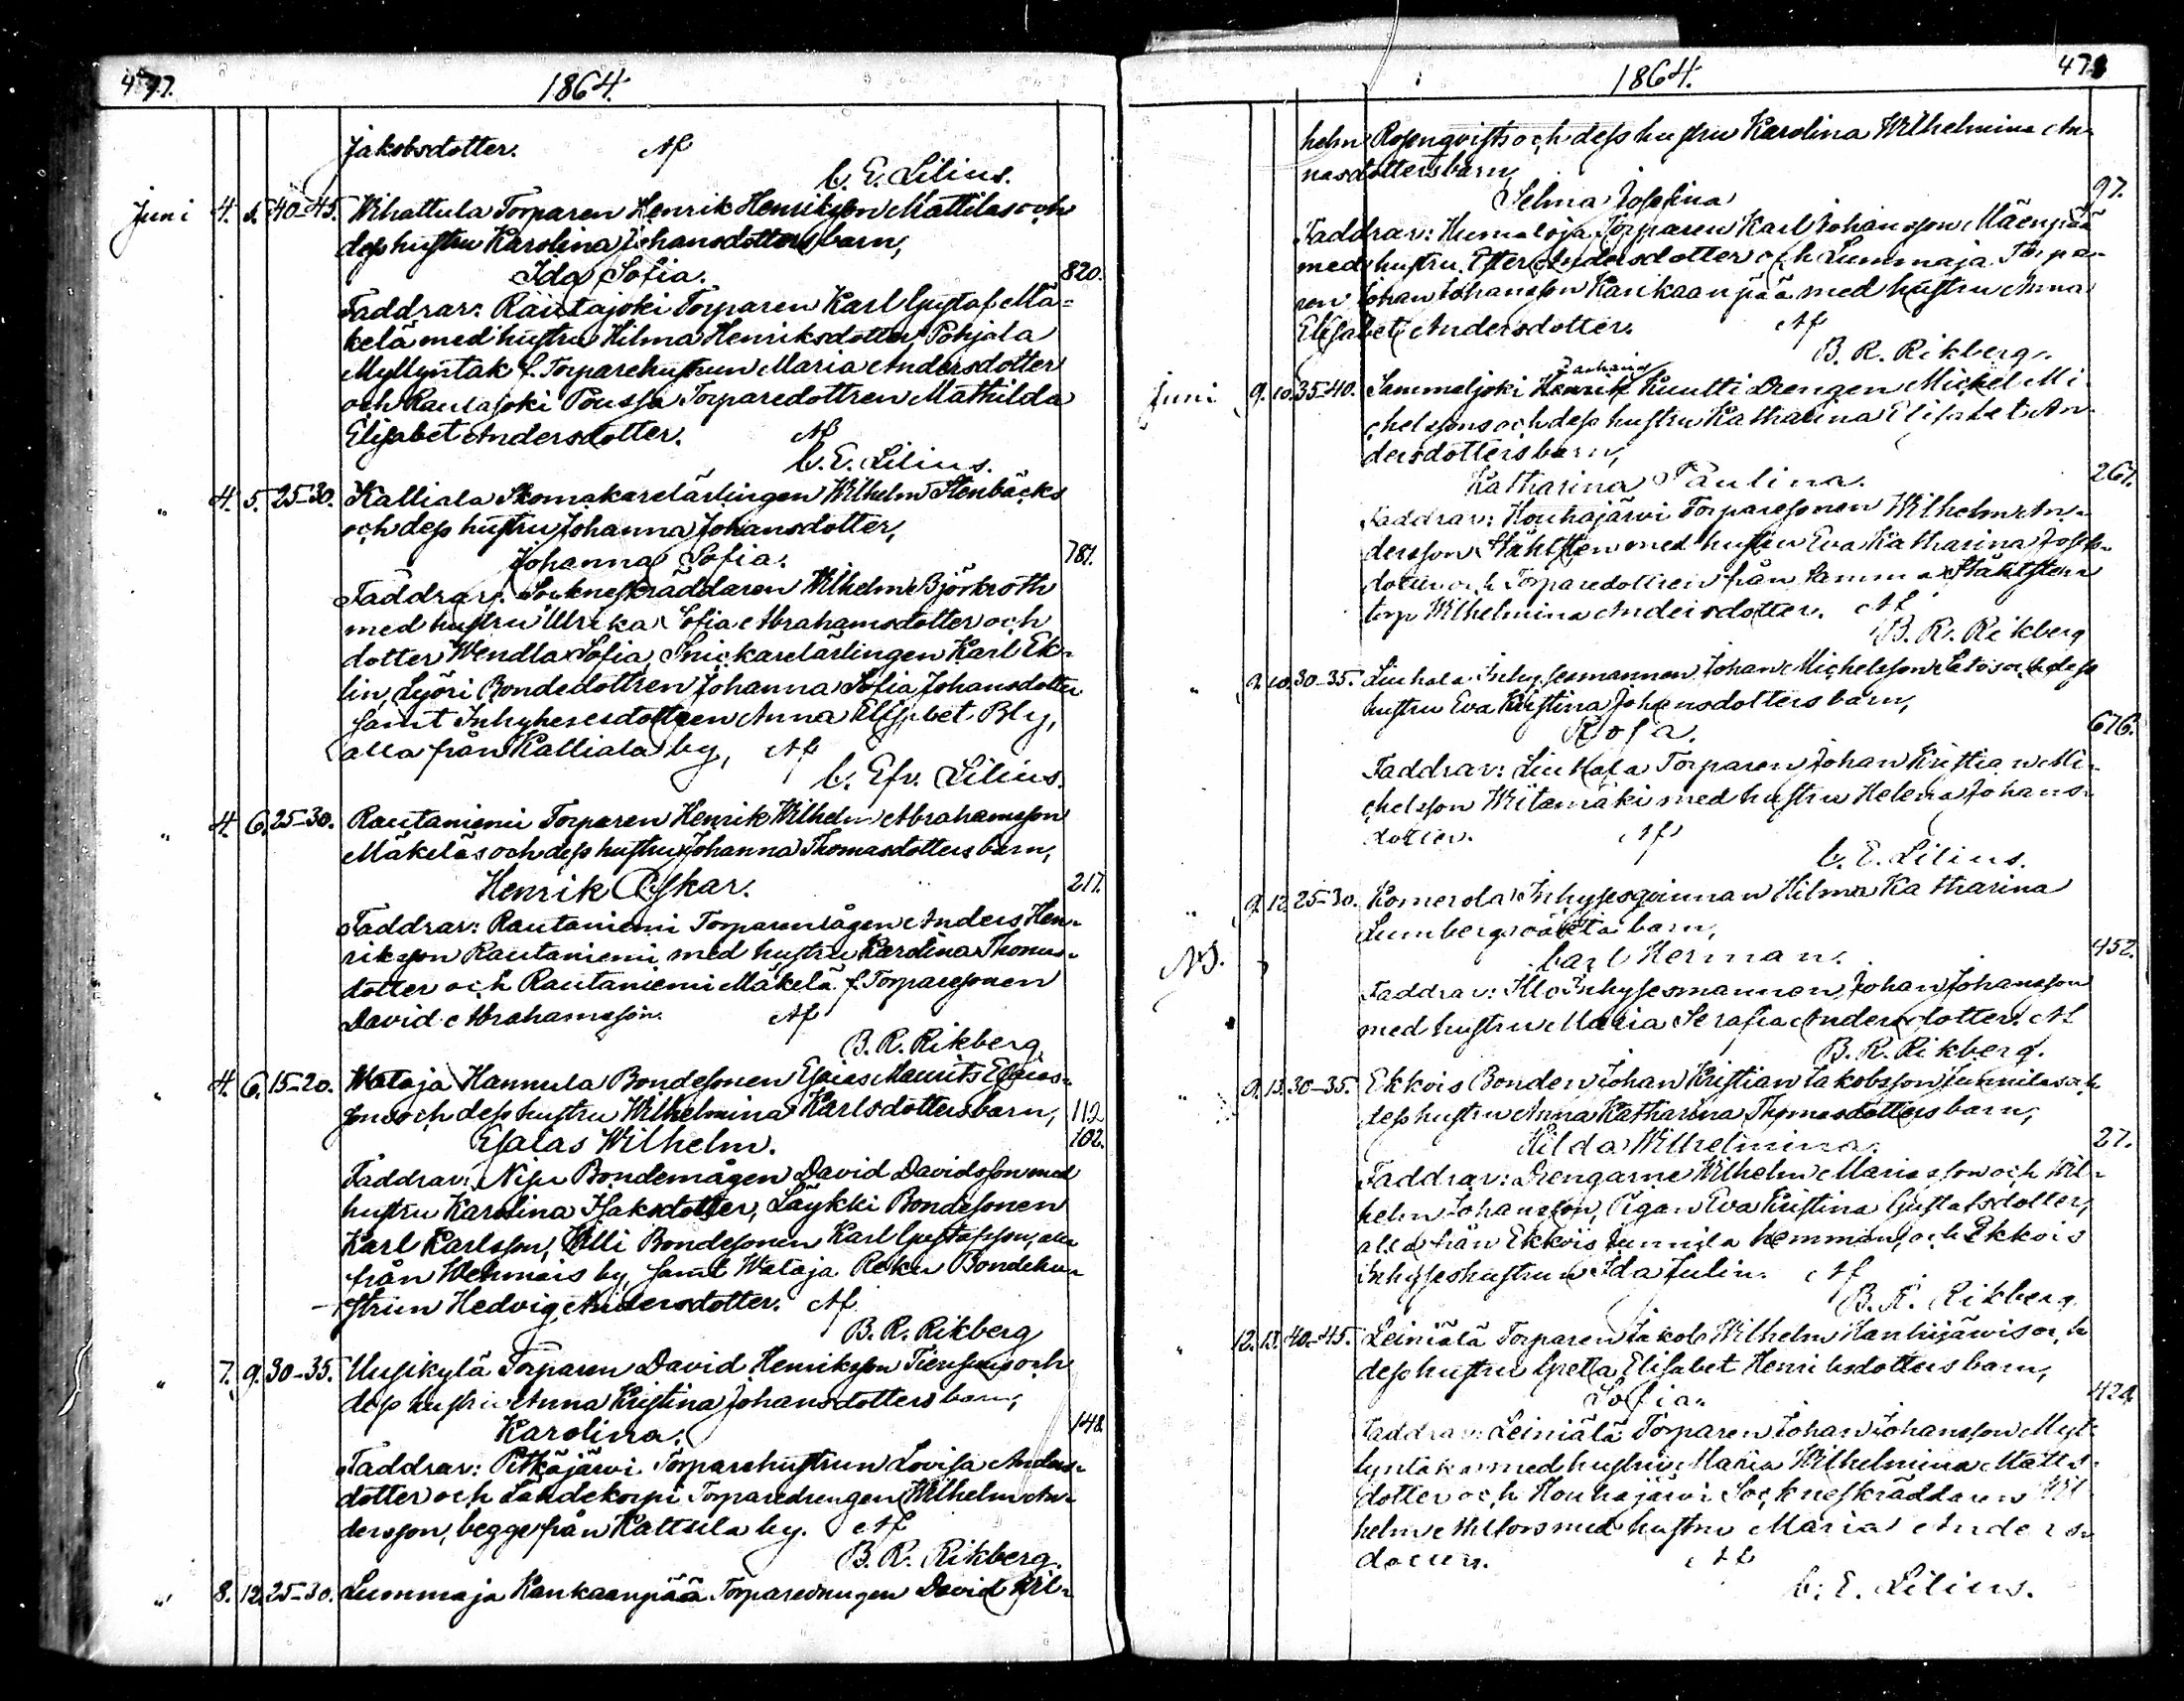 477.
1864.
Jakobsdotter. Af
C. E. Lilius.
Juni 4. 5. 40-45. Wihattula Torparen Henrik Henriksson Mattilas och
dess hustru Karolina Johansdotters barn,
Ida Sofia. 820.
Faddrar: Rautajoki Torparen Karl Gustaf Mä=
kelä med hustru Hilma Henriksdotter, Pohjala
Myllyntak f. Torparehustrun Maria Andersdotter
och Rautajoki Poussa Torparedottren Mathilda
Elisabet Andersdotter. Af
C. E. Lilius.
" 4. 5. 25-30. Kalliala Skomakarelärlingen Wilhelm Stenbäcks
och dess hustru Johanna Johansdotter,
Johanna Sofia. 781.
Faddrar: Sockneskräddaren Wilhelm Björkroth
med hustru Ulrika Sofia Abrahamsdotter och
dotter Wendla Sofia, Snickarelärlingen Karl Ek-
lin, Lyöri Bondedottren Johanna Sofia Johansdotter
samt Inhyhesesdottren Anna Elisabet Bly,
alla från Kalliala by, Af
C. Efr. Lilius.
" 4. 6. 25-30. Rautaniemi Torparen Henrik Wilhelm Abrahamsson
Mäkeläs och dess hustru Johanna Thomasdotters barn,
Henrik Oskar. 217.
Faddrar: Rautaniemi Torparemågen Anders Hen-
riksson Rautaniemi med hustru Karolina Thomas-
dotter och Rautaniemi Mäkelä f. Torparesonen
David Abrahamsson. Af
B. R. Rikberg.
" 4. 6. 15-20. Wataja Hannula Bondesonen Esaias Maurits Esaias-
sons och dess hustru Wilhelmina Karlsdotters barn, 112
Esaias Wilhelm. 102.
Faddrar: Nipu Bondemågen David Davidsson med
hustru Karolina Isaksdotter, Läykki Bondesonen
Karl Karlsson, Olli Bondesonen Karl Gustafsson, alla
från Wehmais by, samt Wataja Reku Bondehu-
strun Hedvig Andersdotter. Af
B. R. Rikberg
" 7. 9. 30-35. Uusikylä Torparen David Henriksson Tiensuus och
dess hustru Anna Kristina Johansdotters barn,
Karolina. 148.
Faddrar: Pitkäjärvi Torparehustrun Lovisa Anders-
dotter och Lahdekorpi Torparedrengen Wilhelm An-
dersson, begge från Kattula by. Af
B. R. Rikberg.
" 8. 12. 25-30. Lummaja Kankaanpää Torparedrengen David Wil-
478
1864.
helm Rosenqvists och dess hustru Karolina Wilhelmina An-
nasdotters barn,
Selma Josefina 97.
Faddrar: Humaloja Torparen Karl Johansson Mäenpää
med hustru Ester Andersdotter och Lummaja Torpa-
ren Johan Johansson Kankaanpää med hustru Anna
Elisabet Andersdotter. Af
B. R. Rikberg.
Juni 9. 10. 35-40. Sammaljoki Henrik Kuutti Drengen Mickel Mi-
chelssons och dess hustru Katharina Elisabet An-
dersdotters barn,
Katharina Paulina. 261.
Faddrar: Houhajärvi Torparesonen Wilhelm An-
dersson Ståhlsten med hustru Eva Katharina Josefs-
dotter och Torparedottren från samma Ståhlstens
torp Wilhelmina Andersdotter. Af
B. R. Rikberg
" 9. 10. 30-35. Liuhala Inhysesmannen Johan Michelsson Latos och dess
hustru Eva Kristina Johansdotters barn,
Rosa. 676.
Faddrar: Liuhala Torparen Johan Kristian Mi-
chelsson Wiitamäki med hustru Helena Johans-
dotter. Af
C. E. Lilius.
" 9. 12. 25-30. Komerola Inhysesqvinnan Hilma Katharina
Lumbergs oäkta barn,
Carl Herman. 452.
Faddrar: Illo Inhysesmannen Johan Johansson
med hustru Maria Serafia Andersdotter. Af
B. R. Rikberg.
" 9. 13. 30-35. Ekkois Bonden Johan Kristian Jakobsson Junnilas och
dess hustru Anna Katharina Thomasdotters barn,
Hilda Wilhelmina. 27.
Faddrar: Drengarne Wilhelm Mariasson och Wil-
helm Johansson, Pigan Eva Kristina Gustafsdotter,
alla från Ekkois Junnila hemman, och Ekkois
Inhyseshustrun Ida Julin. Af
B. R. Rikberg
" 12. 13. 40-45. Leiniälä Torparen Jakob Wilhelm Kanhijärvis och
dess hustru Greta Elisabet Henriksdotters barn,
Sofia. 424.
Faddrar: Leiniälä Torparen Johan Johansson Myl-
lyntaka med hustru Maria Wilhelmina Matts-
dotter och Houhajärvi Sockneskräddaren Wil-
helm Ahlfors med hustru Maria Anders-
dotter. Af
C. E. Lilius.